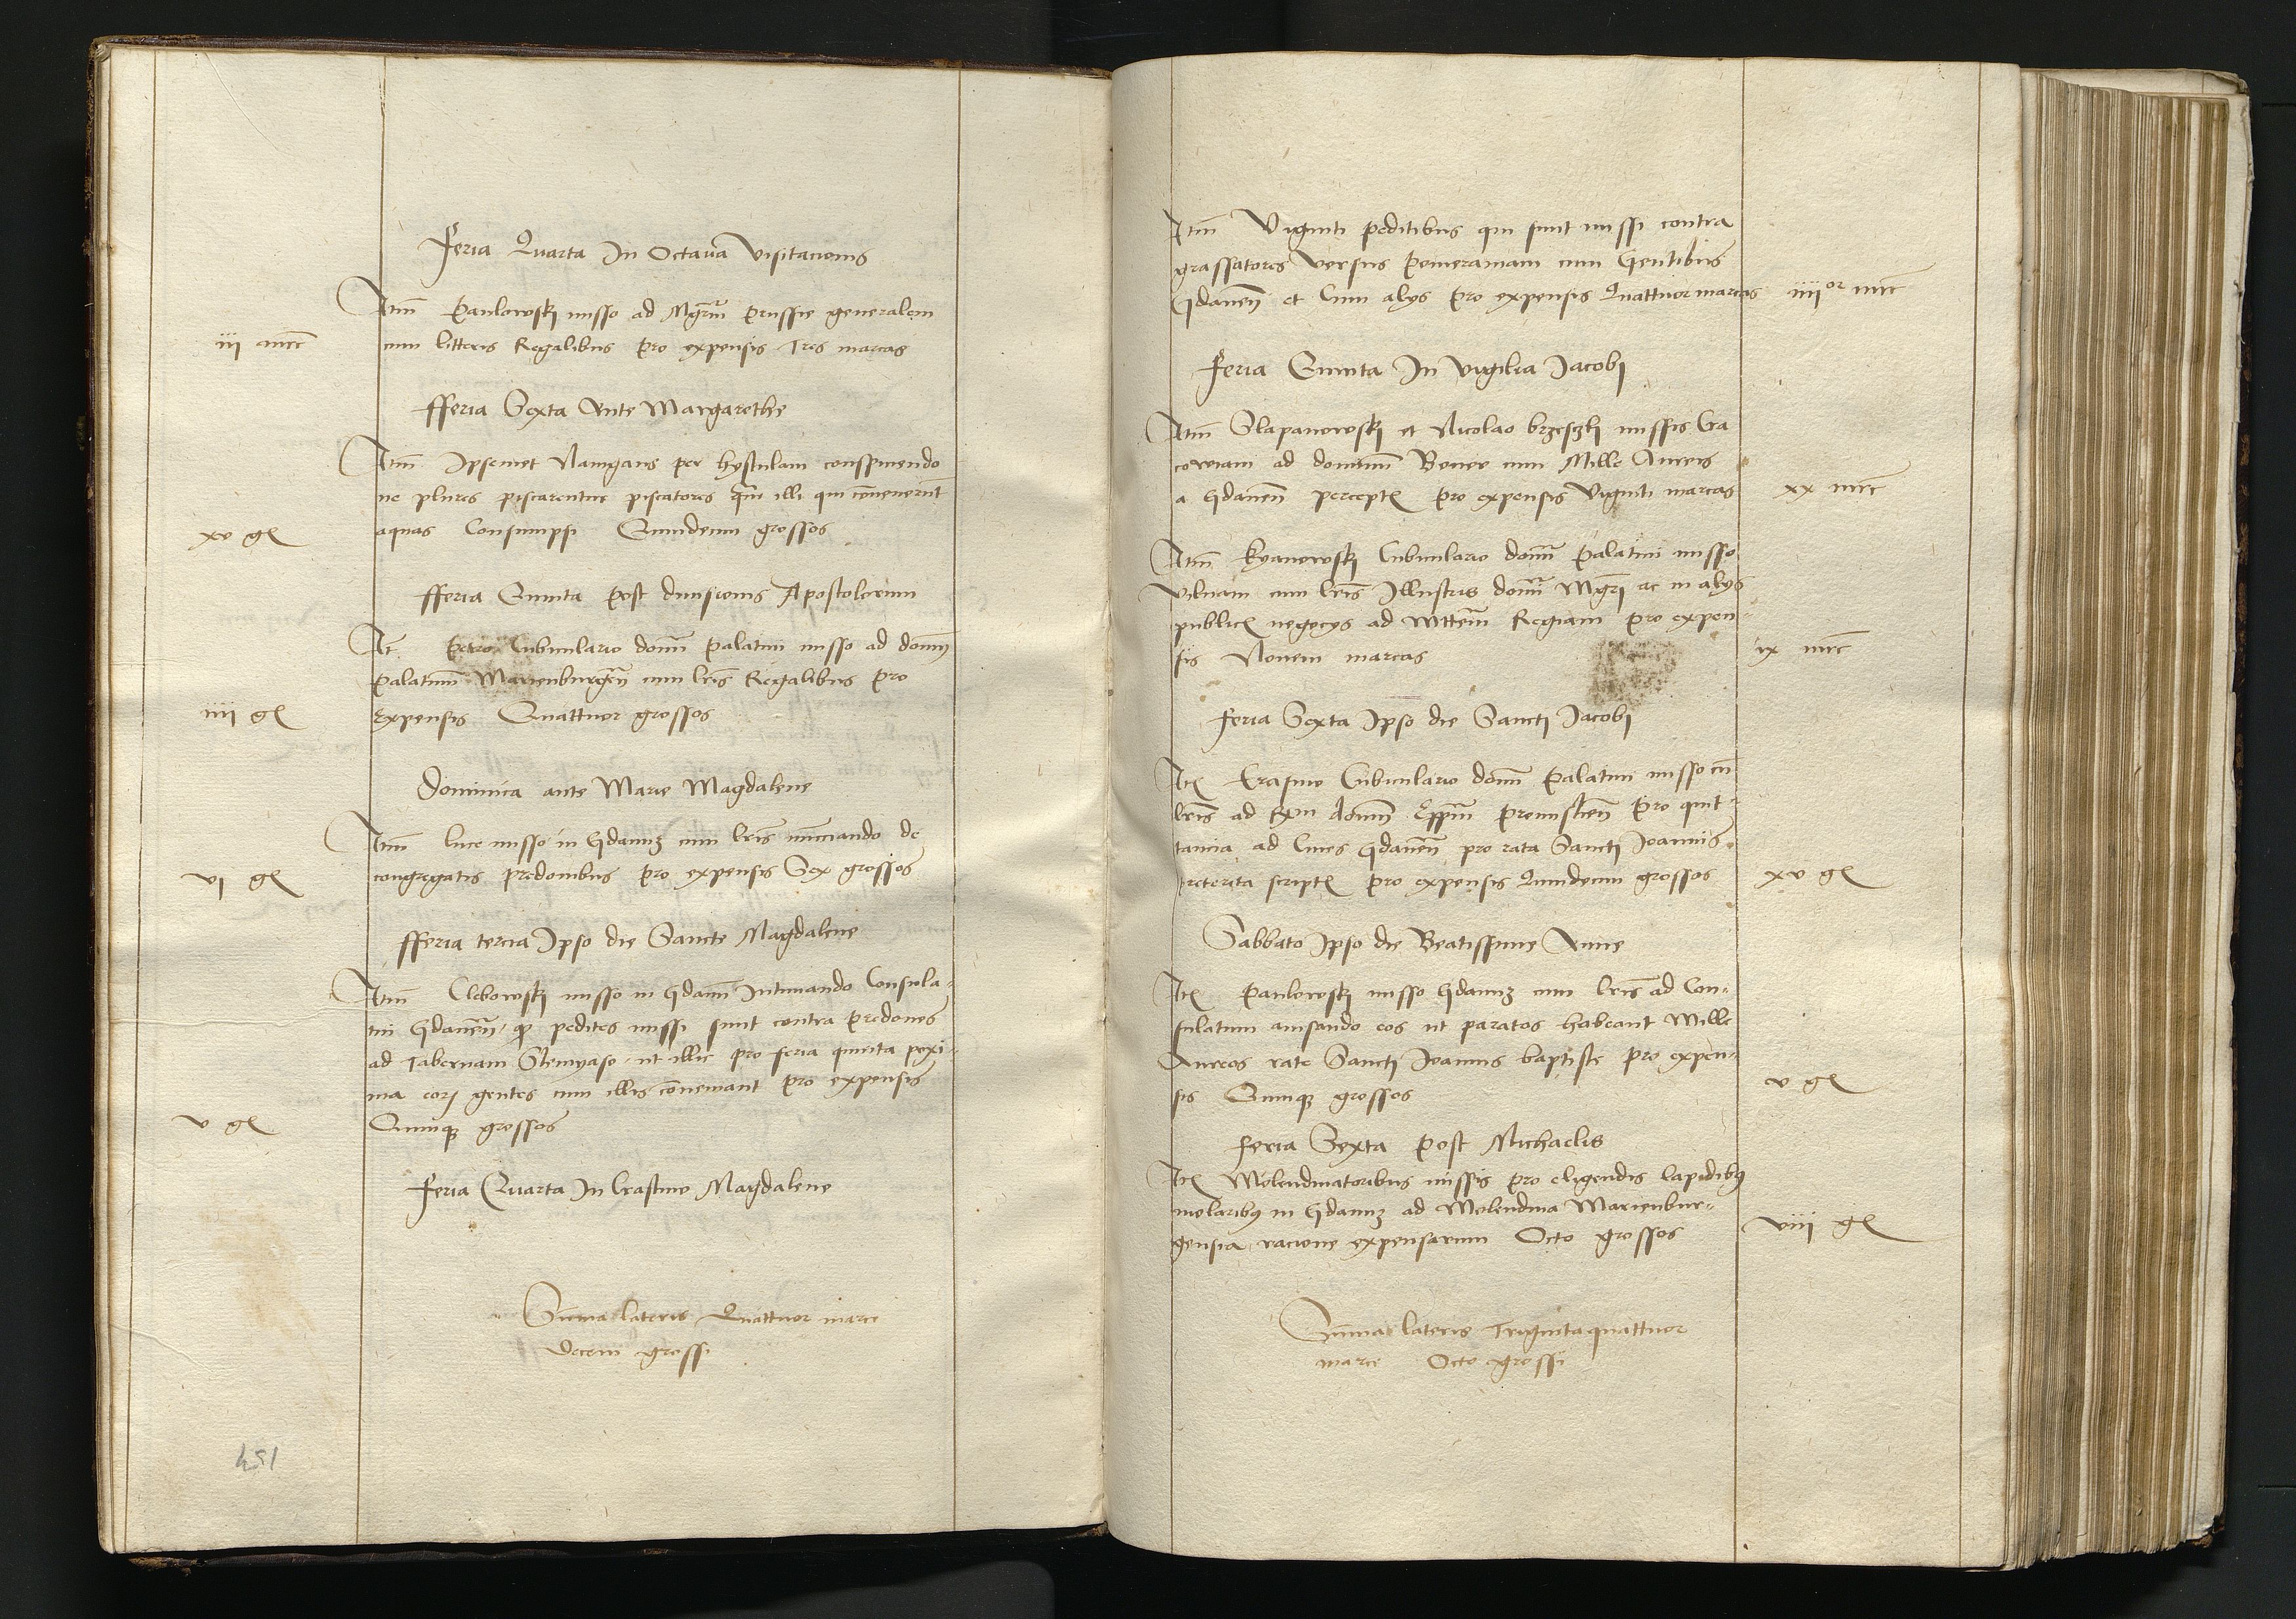 Feria Quarta In Octaua Visitacionis
Itm̄ Pawlowskj misso ad Mgr̄m prussie generalem
iii mrc̄
cum litteris Regalibus pro expensis Tres marcas
fferia Sexta Ante Margarethe
Itm̄ Ipsemet Nauigans per hystulam conspiciendo
ne plures piscarentur piscatores q̄m illi qui cōuenerūt
aquas Consumpsi Quindecim grossos
xv gᷓ
fferia Quinta post diuisionis Apostolorum
It̄ Petro Cubiculario domī palatini misso ad domū
palatinū Marienburgeñ cum lrīs Regalibus pro
Expensis Quattuor grossos
iiii gᷓ
Dominica ante Marie Magdalene
Itm̄ luce misso in Gdanuz cum lrīs nūciando de
congregatis predonibus pro expensis Sex grossos
vi gᷓ
fferia tercia Ipso die Sancte Magdalene
Itm̄ Clebowskj misso in Gdanū Intimando Consula-
tui Gdaneñ qͦ pedites missi sunt contra predones
ad Tabernam ut illic pro feria quinta proxi-
ma eorꝫ gentes cum illis cōueniant pro expensis
Quinqꝫ grossos
v gᷓ
Feria Quarta In Crastino Magdalene
Sūma lateris Quattuor marce
decem grossi
154
Itm̄ Viginti peditibus qui sunt missi contra
grassatores versus pomeraniam cum Gentibus
Gdaneñ et Cum alys pro expensis Quattuor marcas
iiiiᵒʳ mrc̄
Feria Quinta In Vigilia Jacobj
Itm̄ Slapanowskj et Nicolao brzeskj missis Cra
couiam ad dominum Boner cum Mille Aureis
a Gdaneñ perceptꝭ pro expensis Viginti marcas
xx mrc̄
Itm̄ Kyanowskj Cubiculario domī palatini misso
Vilnam cum lrīs Illustris domī Mgrī ac in alys
publicꝭ negocys ad Mttēm Regiam pro expen-
sis Nouem marcas
ix mrc̄
Feria Sexta Ipso die Sancti Jacobj
Itꝭ Erasmo Cubiculario domī palatini misso cū
lrīs ad domū Ep̄m premislieñ pro quit-
tancia ad Ciues Gdaneñ pro rata Sancti Joannis
preterita scriptꝭ pro expensis Quindecim grossos
xv gᷓ
Sabbato Ipso die Beatissime Anne
Itꝭ Pawlowskj misso Gdanuz cum lrīs ad Con-
sulatum auisando eos ut paratos habeant Mille
Aureos rate Sancti Joannis baptiste pro expen-
sis Quinqꝫ grossos
v gᷓ
Feria Sexta post Michaelis
Itꝭ Molendinatoribus missis pro eligendis lapidibꝰ
molaribꝰ in Gdanuz ad Molendina Marienbur-
gensia racione expensarum Octo grossos
viii gᷓ
Sūma lateris Trigintaquattuor
marce Octo grossi